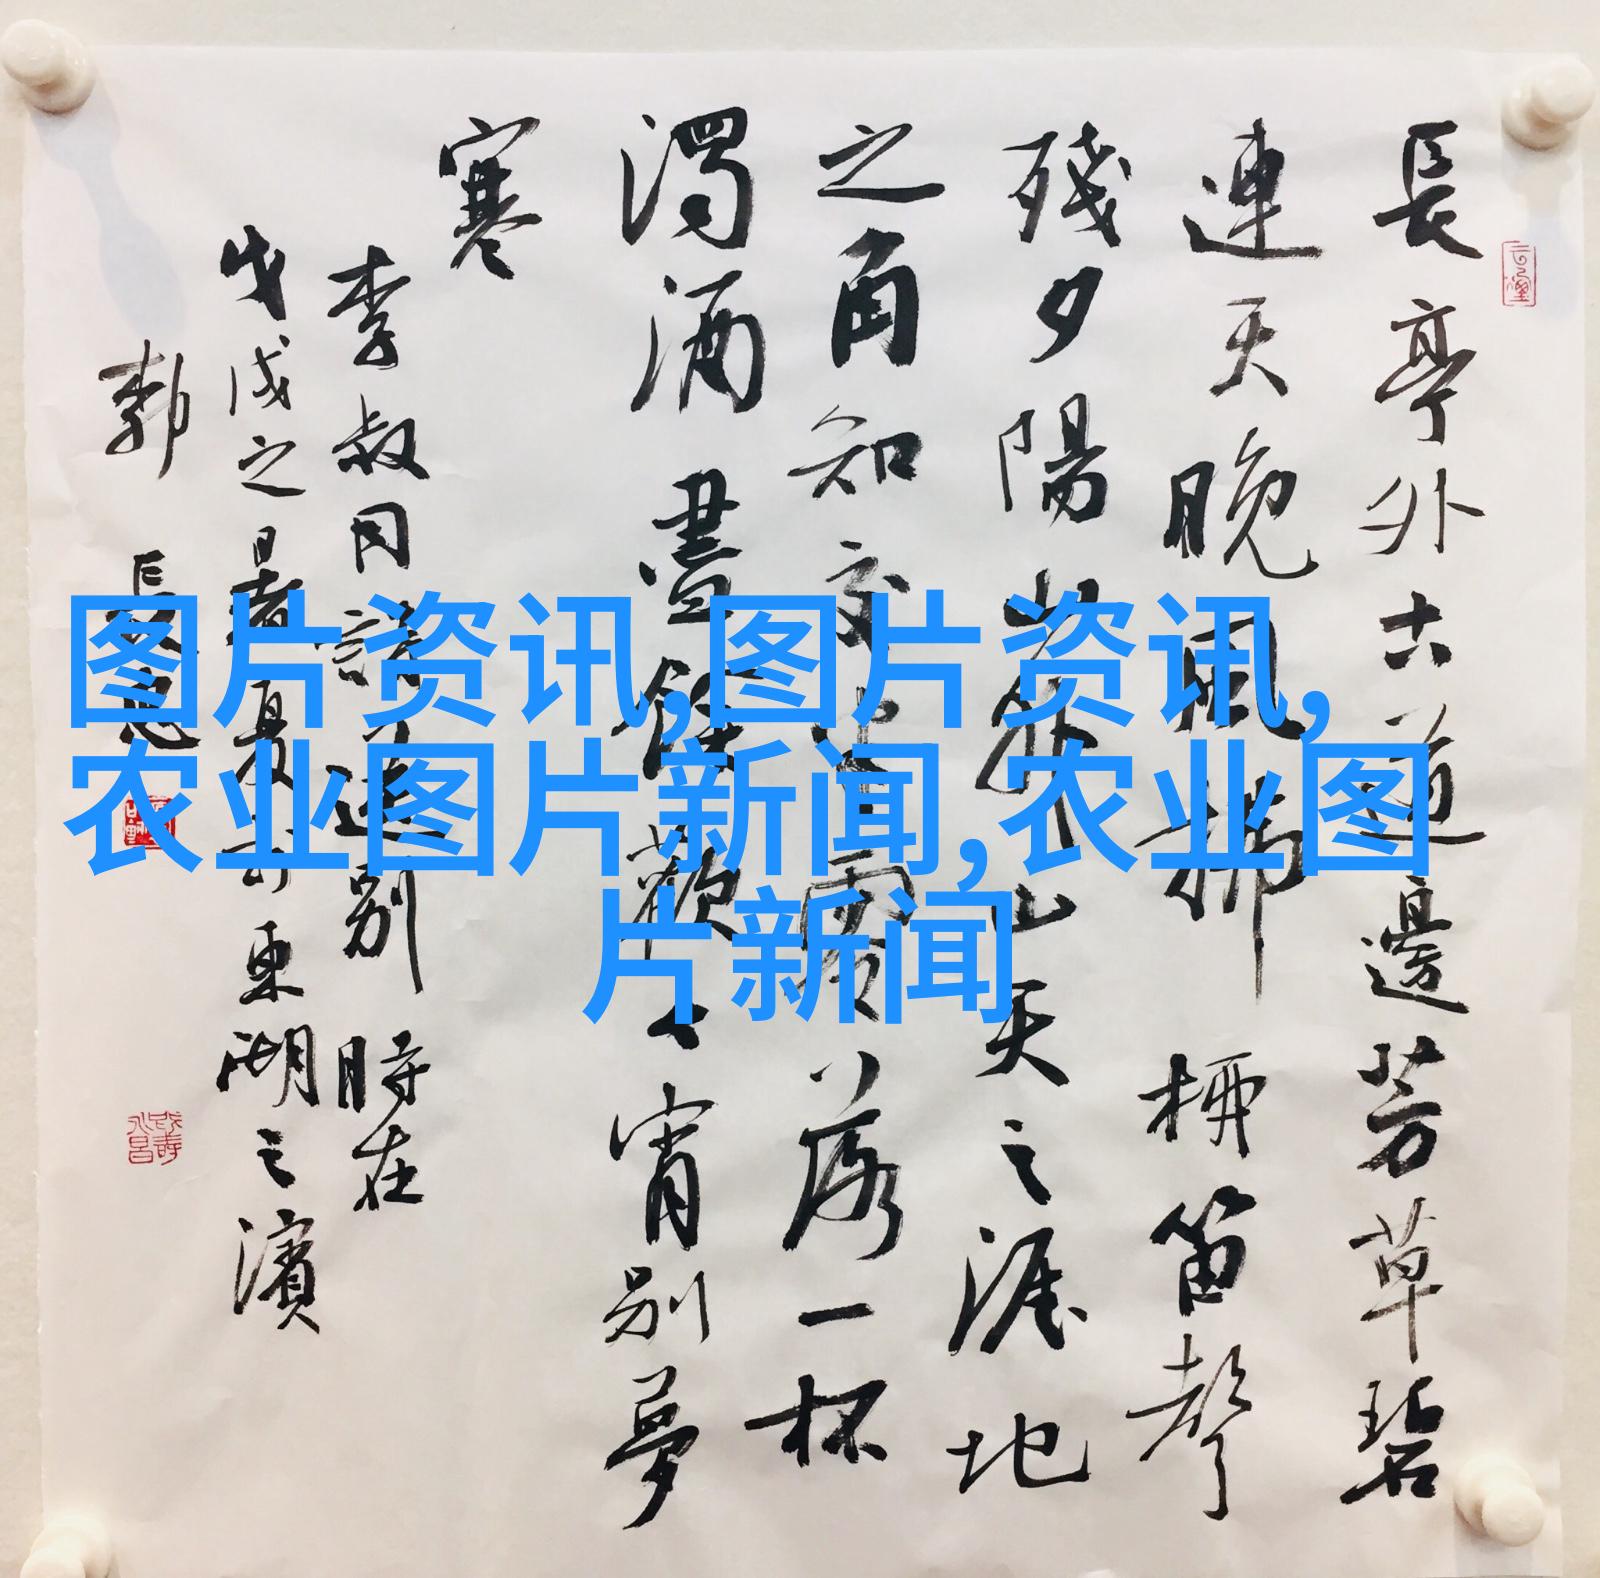 長亭外古道邊芳草碧
連天晚風拂柳笛聲
殘夕陽山外山天之涯地
之角知交半零落一杯
濁酒盡餘歡今宵別夢
寒
李叔同詩送別 時在
戊戌之暑夏東湖之濱
長
图片资讯,图片资讯,
农业图片新闻,农业图
片新闻